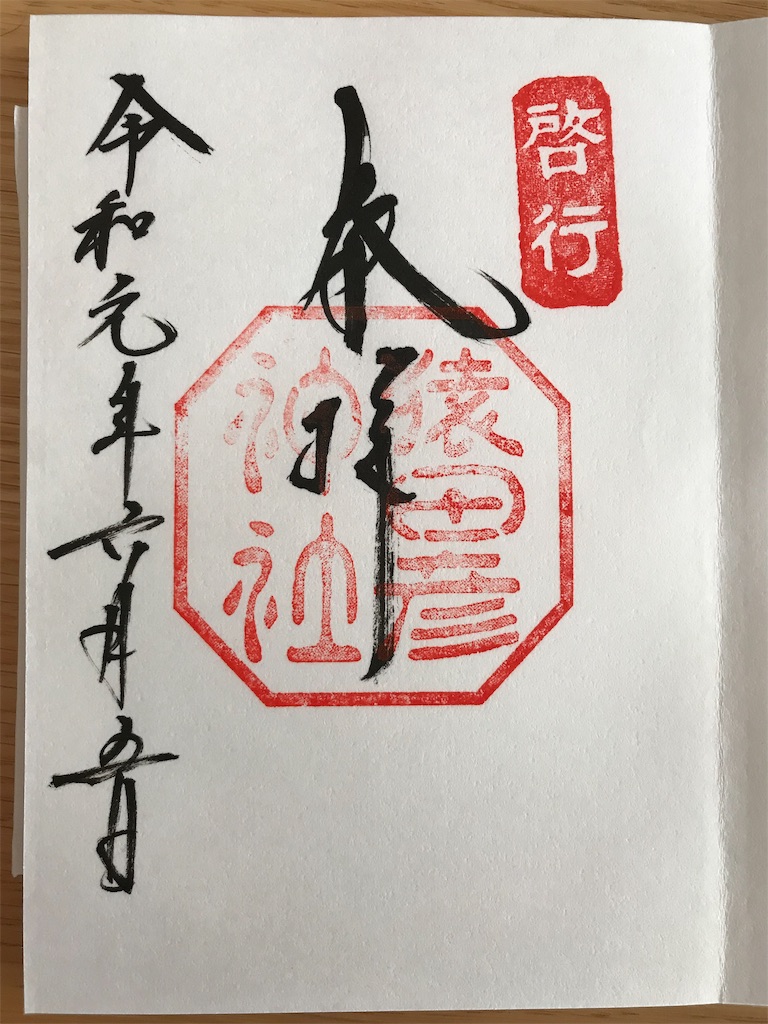 啓行
奉拝
猿田彦
神社
令和元年六月五日